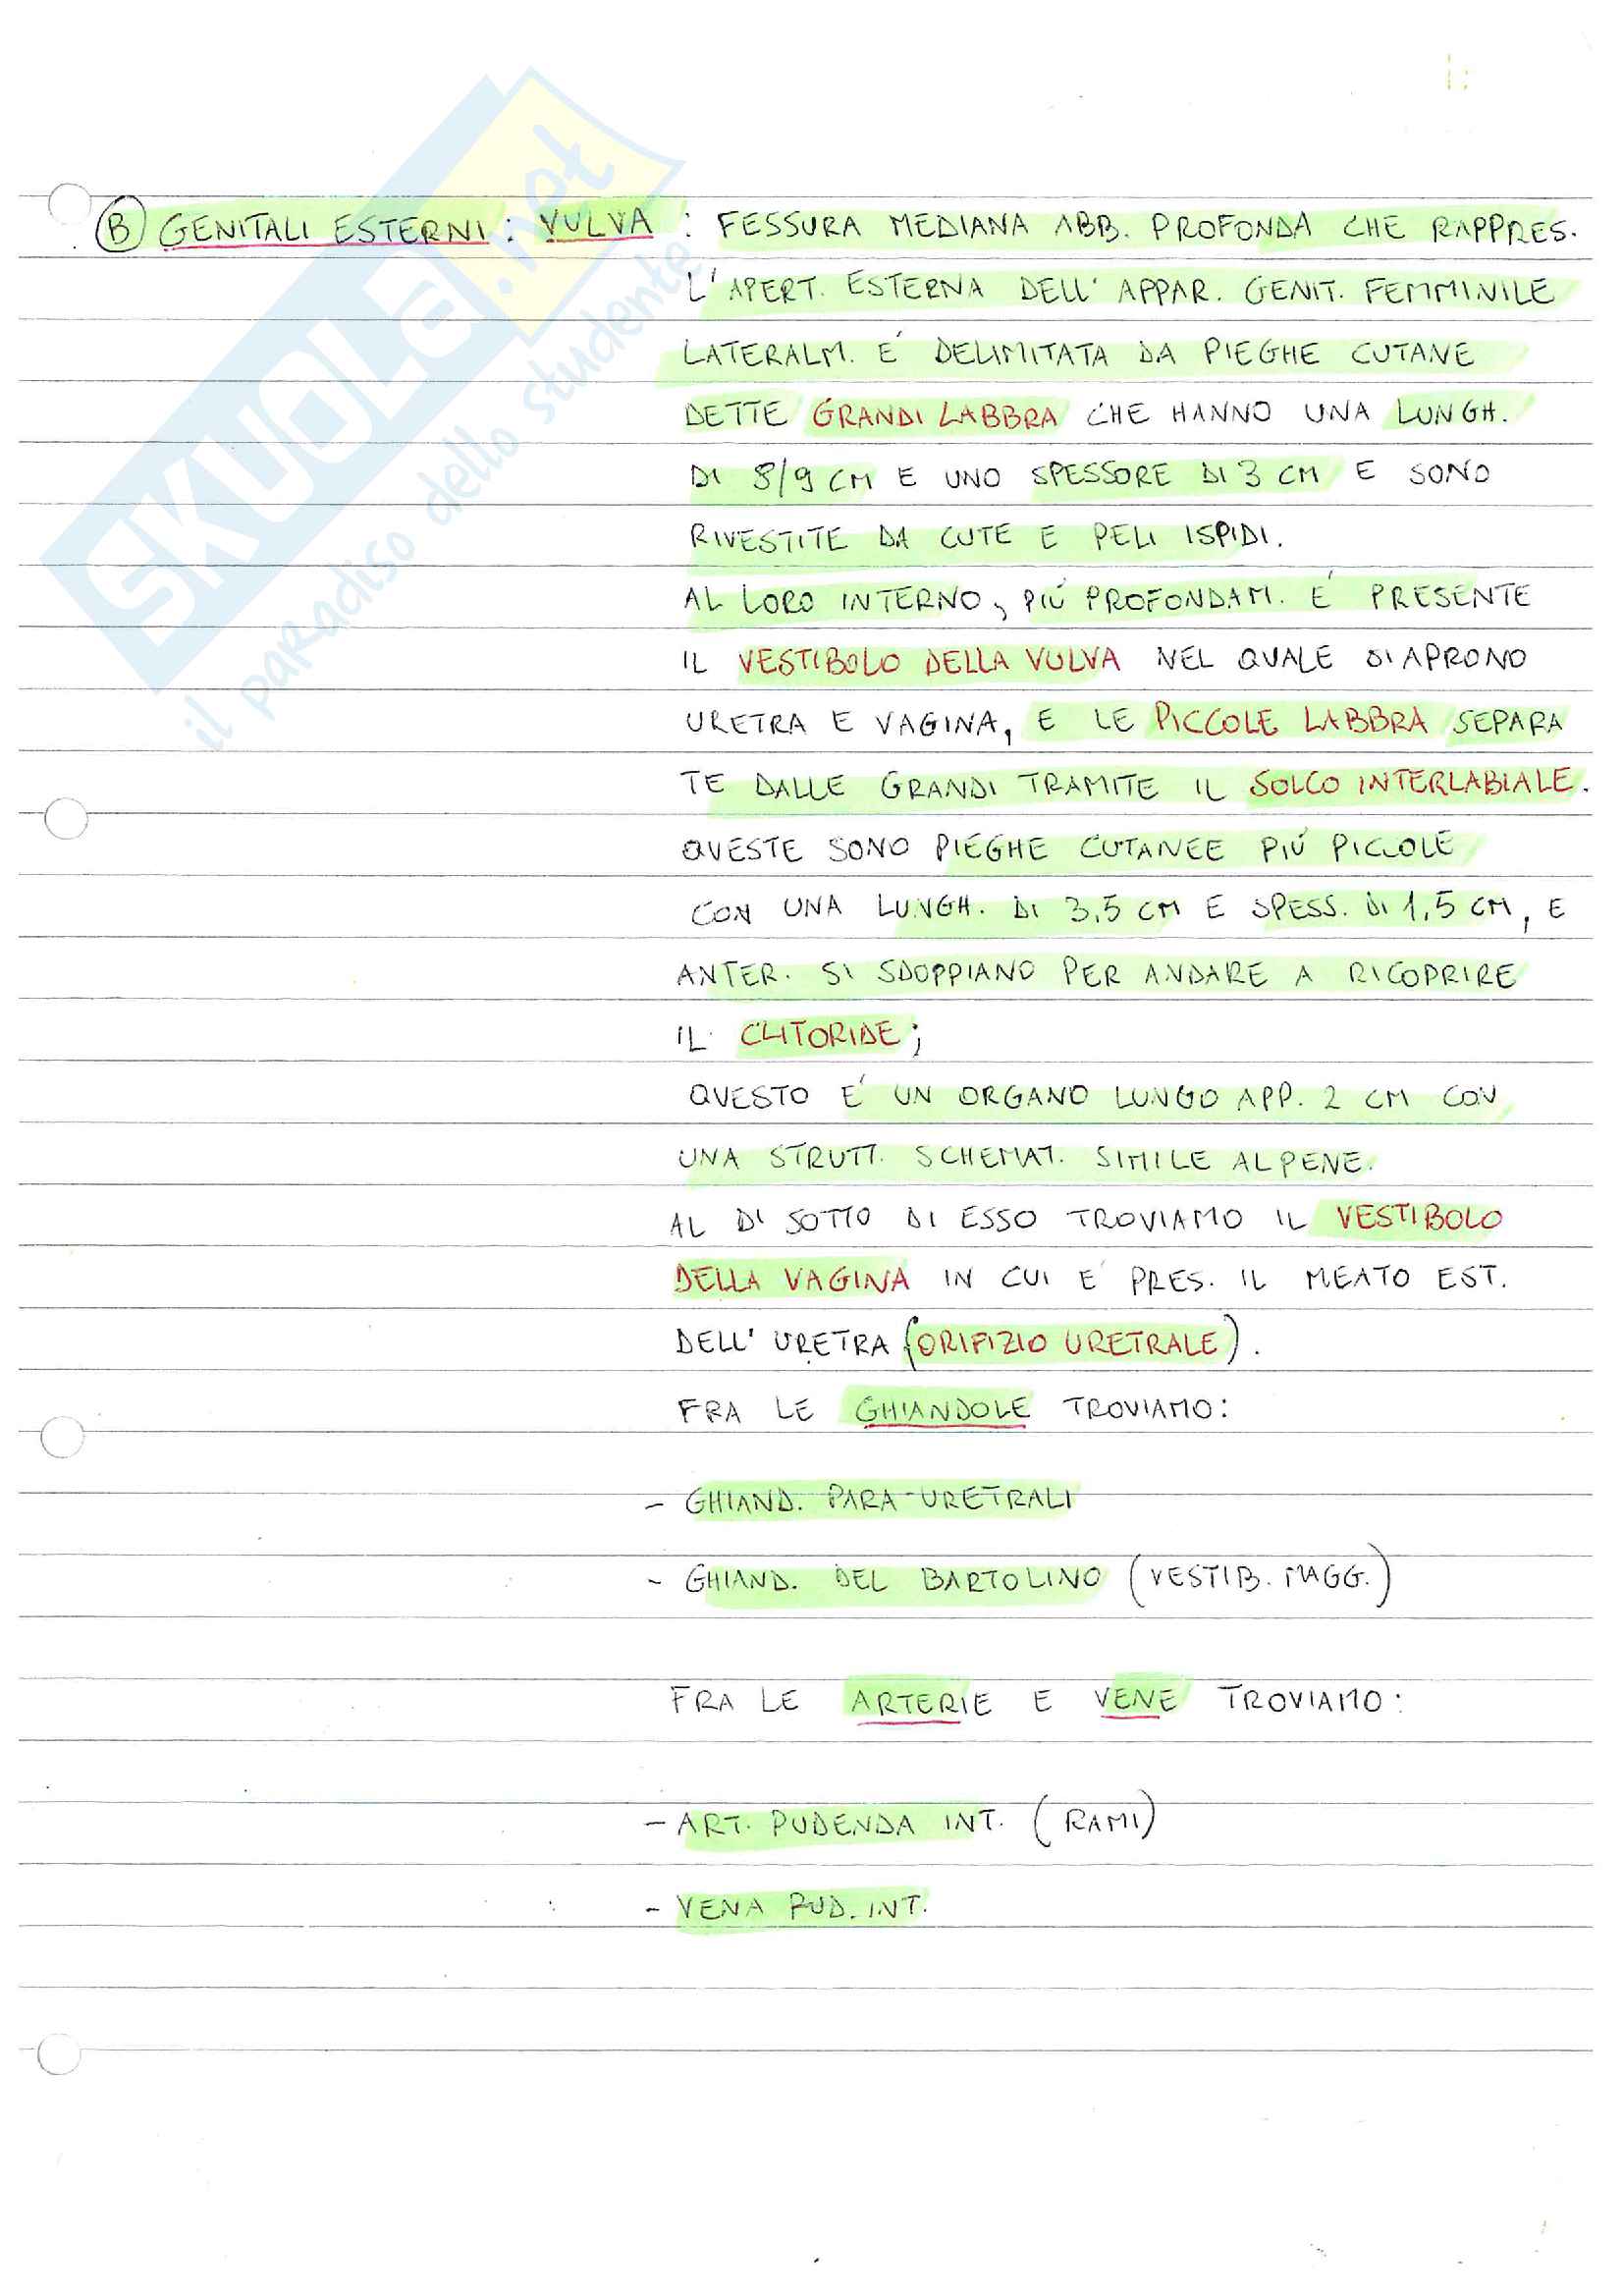 B GENITALI ESTERNI : VULVA : FESSURA MEDIANA ABB. PROFONDA CHE RAPPRES.
L'APERT. ESTERNA DELL'APPAR. GENIT. FEMMINILE
LATERALM. E' DELIMITATA DA PIEGHE CUTANE
DETTE GRANDI LABBRA CHE HANNO UNA LUNGH.
DI 8/9 CM E UNO SPESSORE DI 3 CM E SONO
RIVESTITE DA CUTE E PELI ISPIDI.
AL LORO INTERNO, PIÚ PROFONDAM. E' PRESENTE
IL VESTIBOLO DELLA VULVA NEL QUALE SI APRONO
URETRA E VAGINA, E LE PICCOLE LABBRA SEPARA
TE DALLE GRANDI TRAMITE IL SOLCO INTERLABIALE.
QUESTE SONO PIEGHE CUTANEE PIÚ PICCOLE
CON UNA LUNGH. DI 3,5 CM E SPESS. DI 1,5 CM, E
ANTER. SI SDOPPIANO PER ANDARE A RICOPRIRE
IL CLITORIDE;
QUESTO E' UN ORGANO LUNGO APP. 2 CM CON
UNA STRUTT. SCHEMAT. SIMILE AL PENE.
AL DI SOTTO DI ESSO TROVIAMO IL VESTIBOLO
DELLA VAGINA IN CUI E' PRES. IL MEATO EST.
DELL'URETRA (ORIFIZIO URETRALE).
FRA LE GHIANDOLE TROVIAMO:
- GHIAND. PARA-URETRALI
- GHIAND. DEL BARTOLINO (VESTIB. MAGG.)
FRA LE ARTERIE E VENE TROVIAMO:
- ART. PUDENDA INT. (RAMI)
- VENA PUD. INT.
SKUOLA.net
il paradiso dello studente